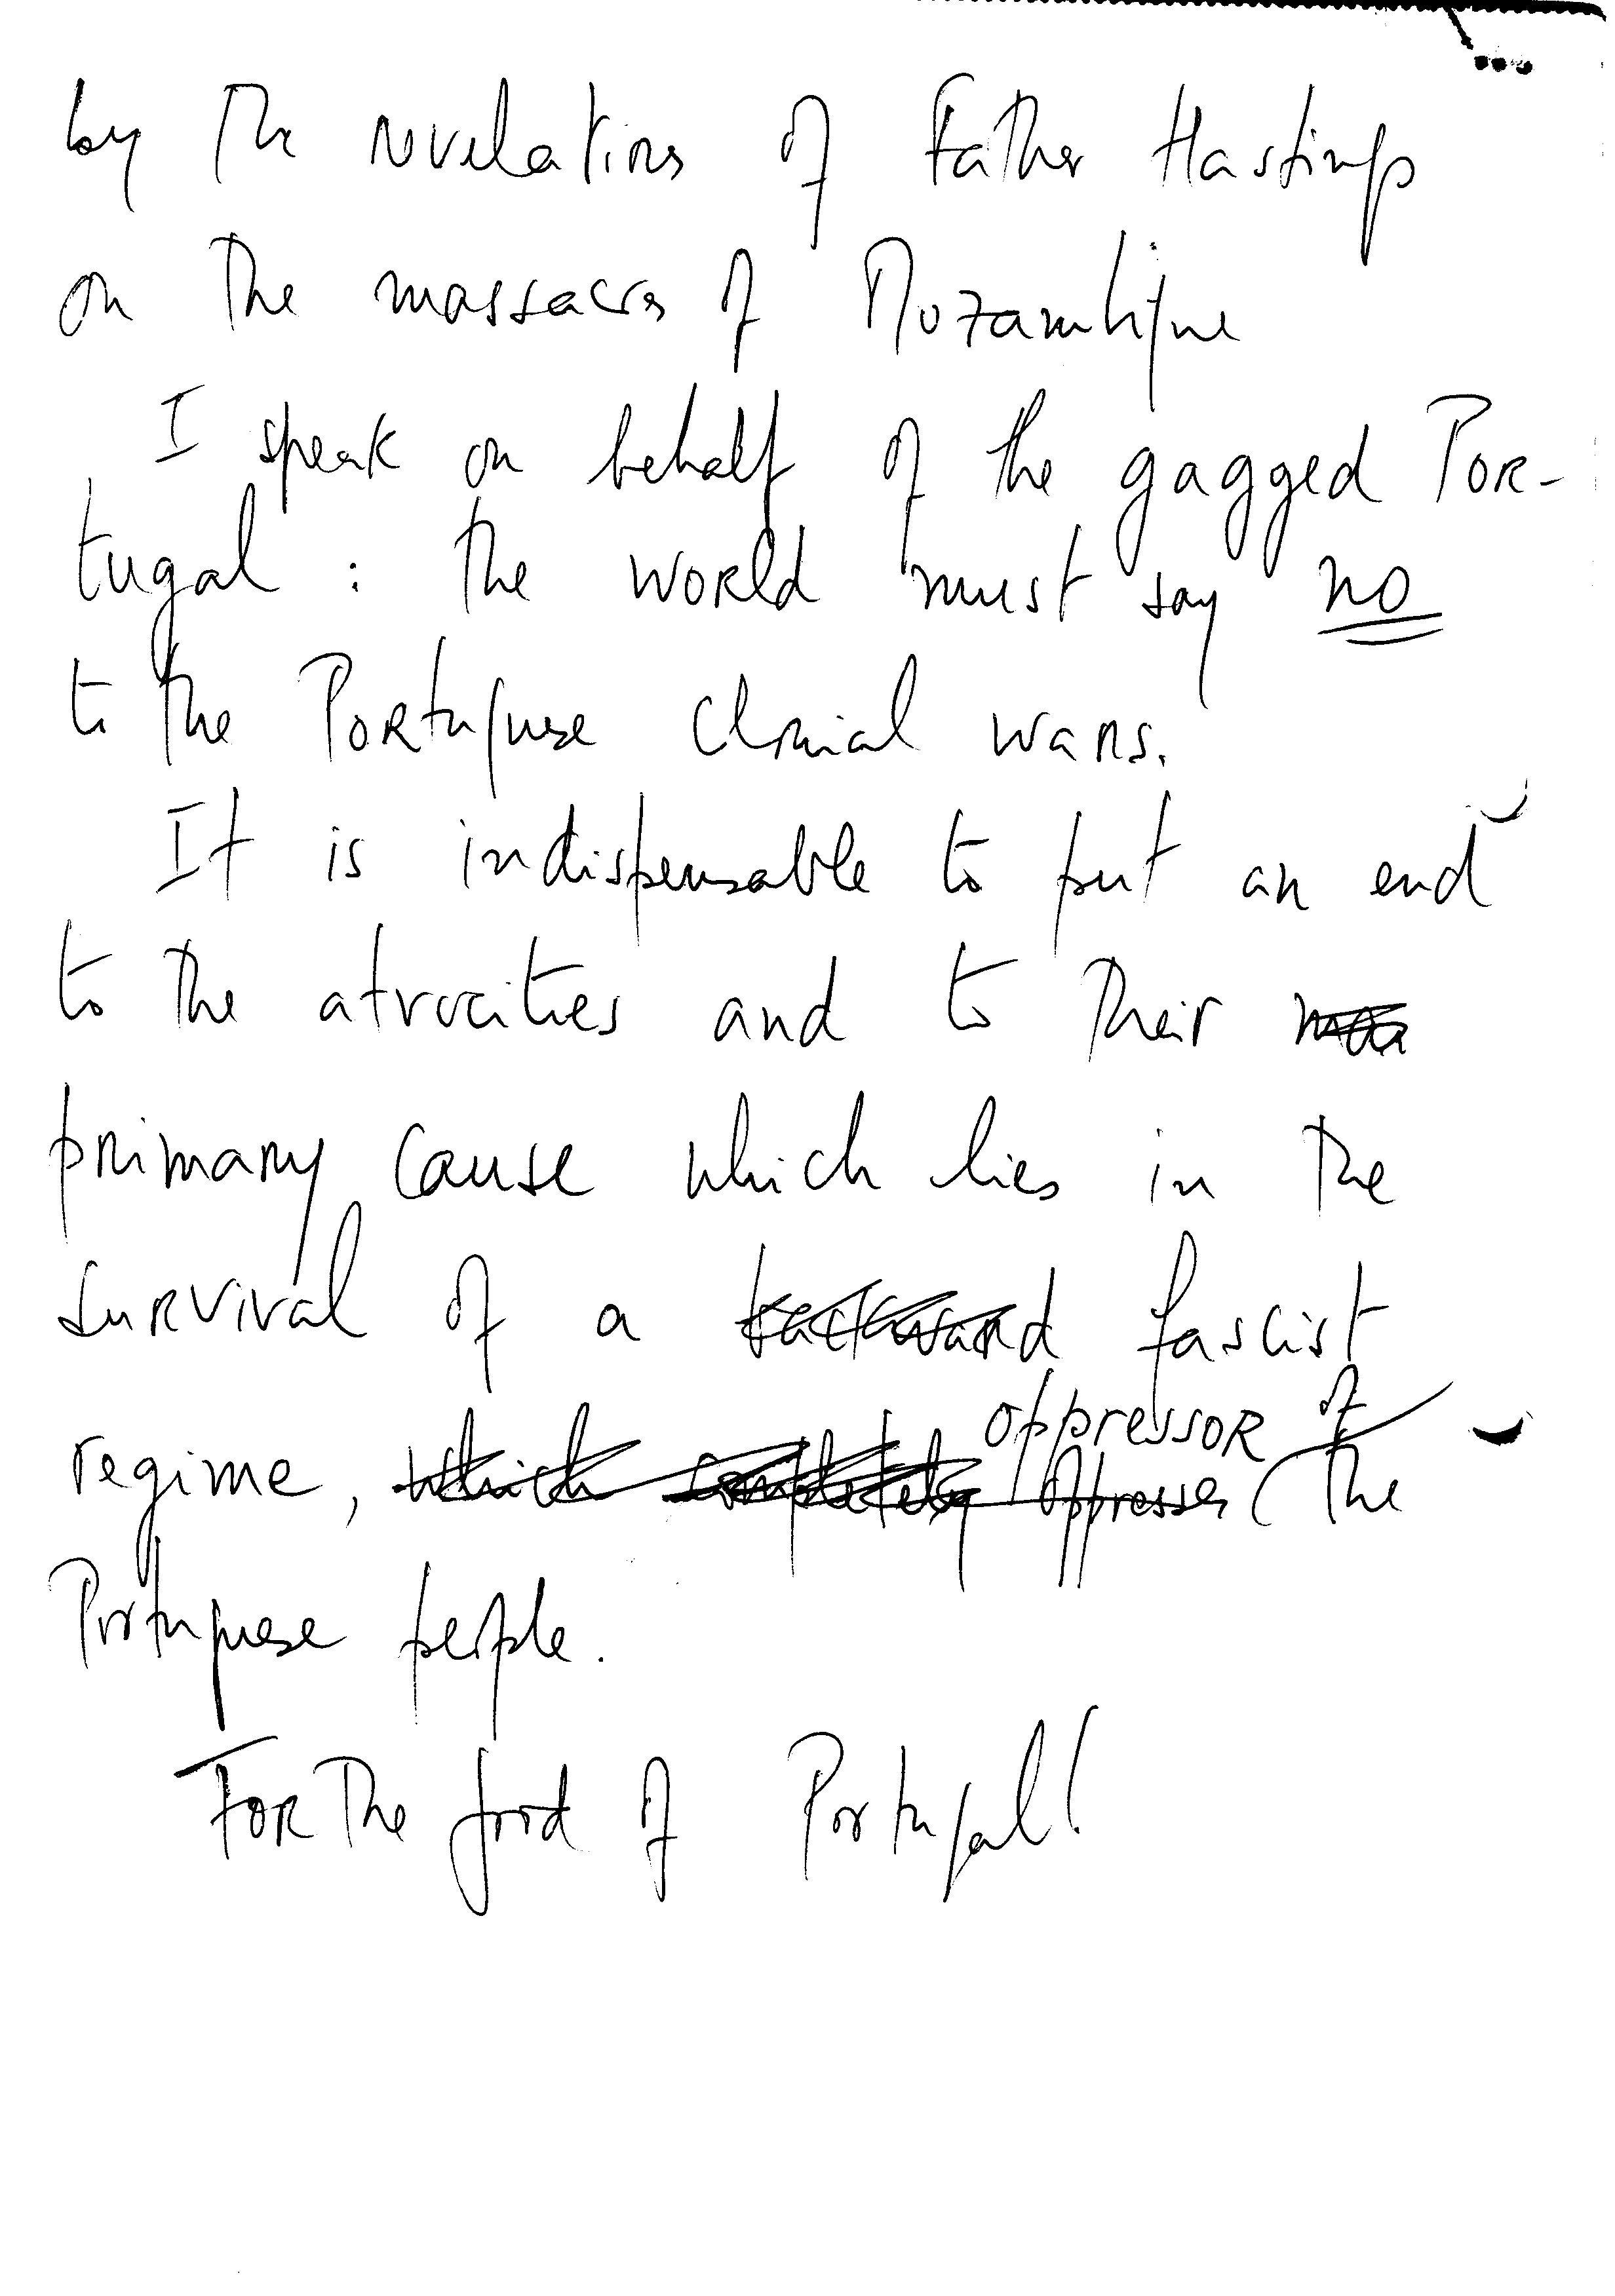 by the revelations of Father Hastings
on the massacres of Mozambique
I speak on behalf of the gagged Por-
tugal : the world must say no
to the Portuguese colonial wars.
It is indispensable to put an end
to the atrocities and to their
primary cause which lies in the
survival of a backward fascist
regime, which completely oppresses oppressor of the
Portuguese people.
For the good of Portugal!